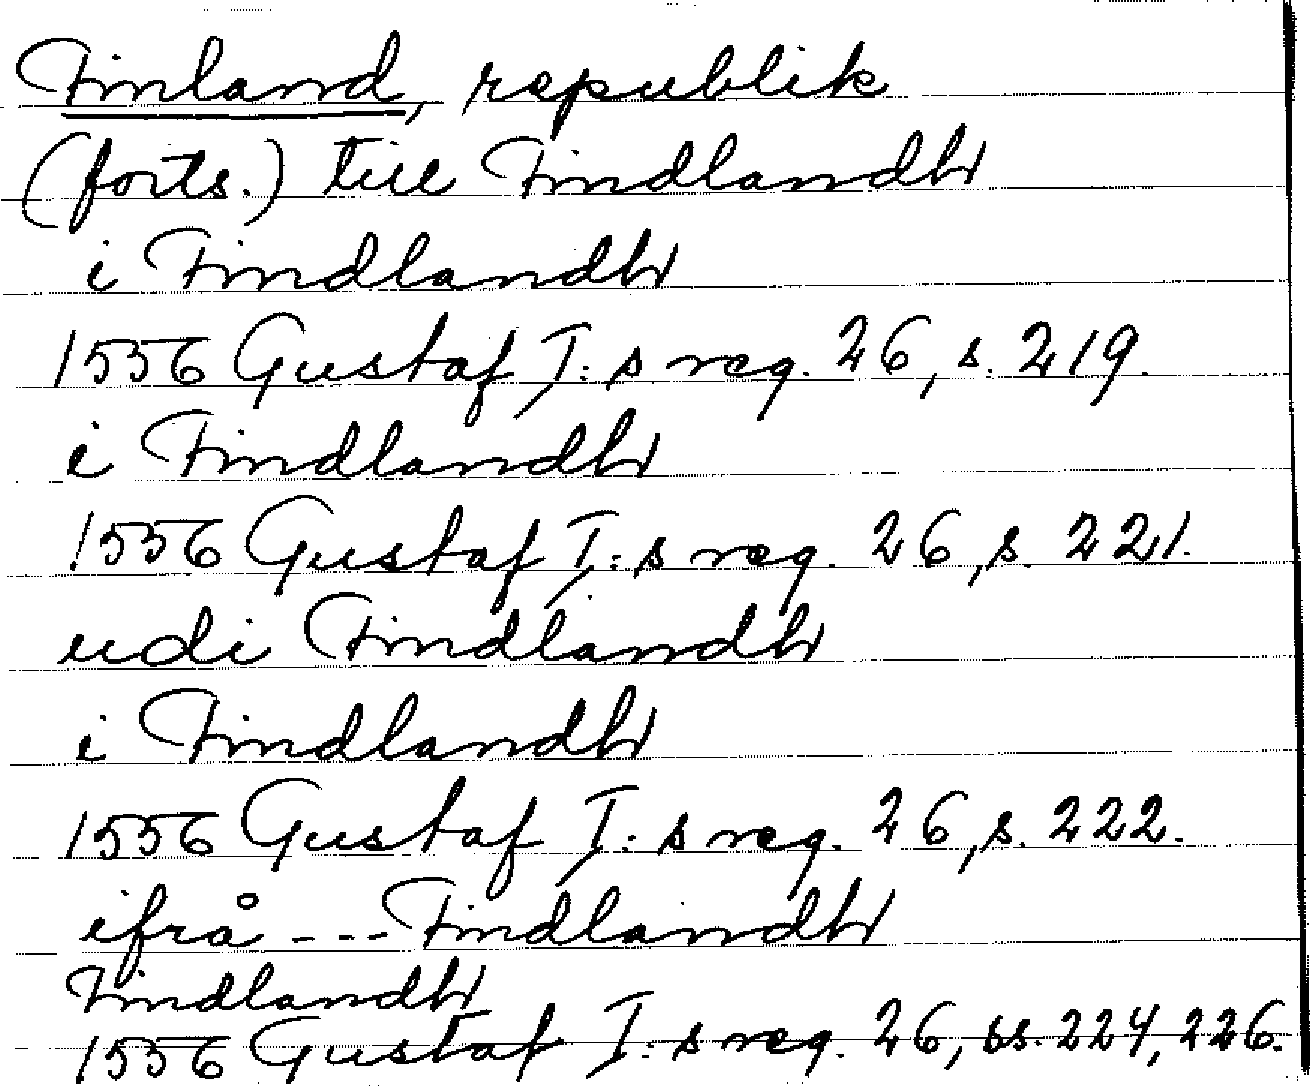 Finland, republik
(forts.) till Findlandh
i Findlandh
1556 Gustaf I:s reg. 26, s. 219.
i Findlandh
1556 Gustaf I:s reg. 26, s. 221.
udi Findlandh
i Findlandh
1556 Gustaf I:s reg. 26, s. 222.
ifrå --- Findlandh
Findlandh
1556 Gustaf I:s reg. 26, ss. 224, 226.